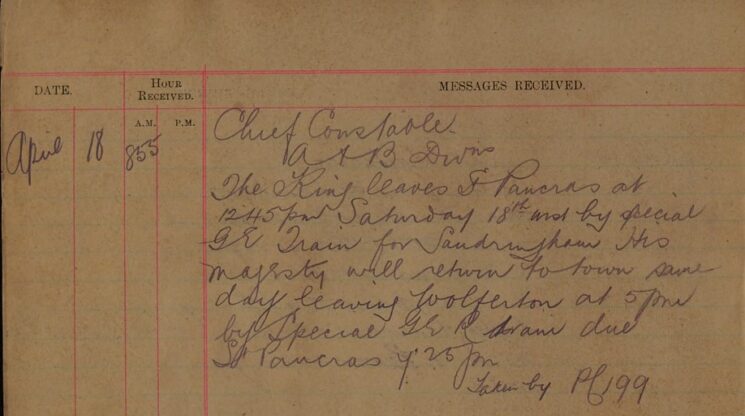 DATE.
HOUR RECEIVED.
MESSAGES RECEIVED.
A.M. P.M.
April 18 855
Chief Constable.
A & B Divns
The King leaves St Pancras at
1245pm Saturday 18th inst by special
GE Train for Sandringham His
Majesty will return to town same
day leaving Wolferton at 5pm
by Special GE R train due
St Pancras 7.25 pm
Taken by PC 199